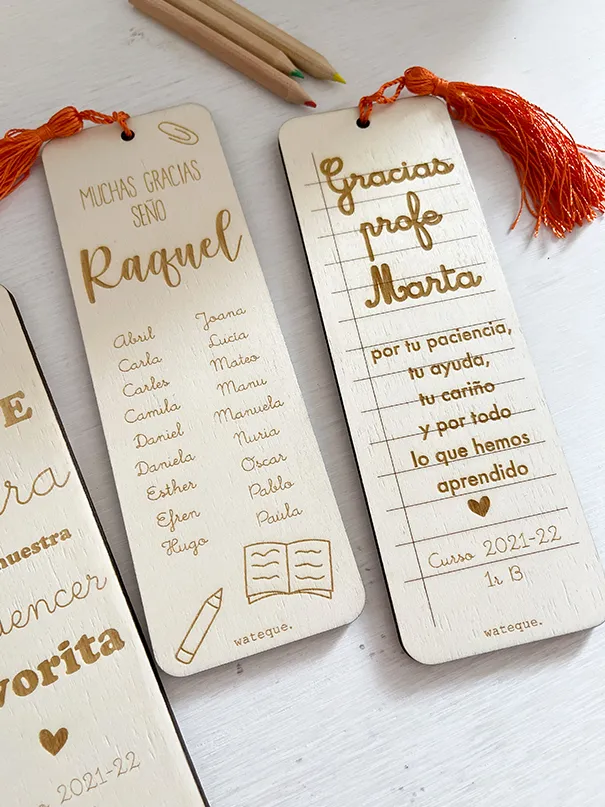 E
nuestra
vorita
2021-22
MUCHAS GRACIAS
SEÑO
Raquel
Abril
Carla
Carles
Camila
Daniel
Daniela
Esther
Efren
Hugo
Joana
Lucía
Mateo
Manu
Manuela
Nuria
Oscar
Pablo
Paula
wateque.
Gracias
profe
Marta
por tu paciencia,
tu ayuda,
tu cariño
y por todo
lo que hemos
aprendido
Curso 2021-22
1r B
wateque.